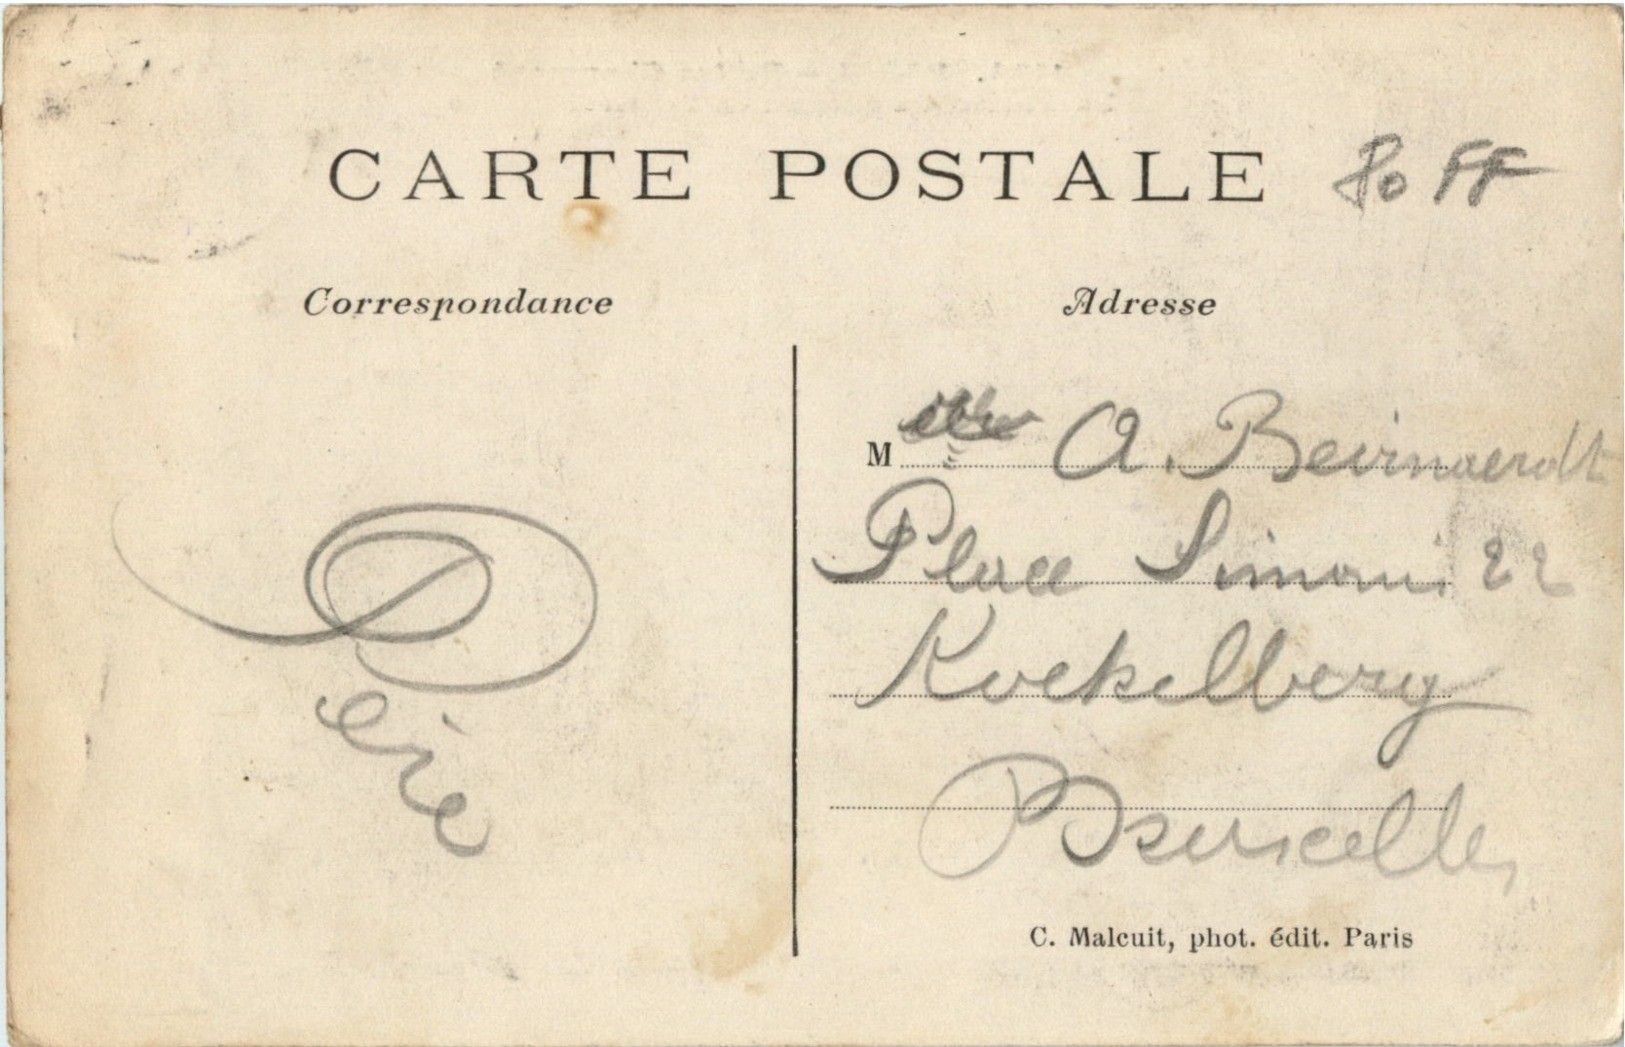 CARTE POSTALE
80 FF
Correspondance
Adresse
Père
Melle A. Beirnaerdt
Place Simonis 22
Koekelberg
Bruxelles
C. Malcuit, phot. édit. Paris